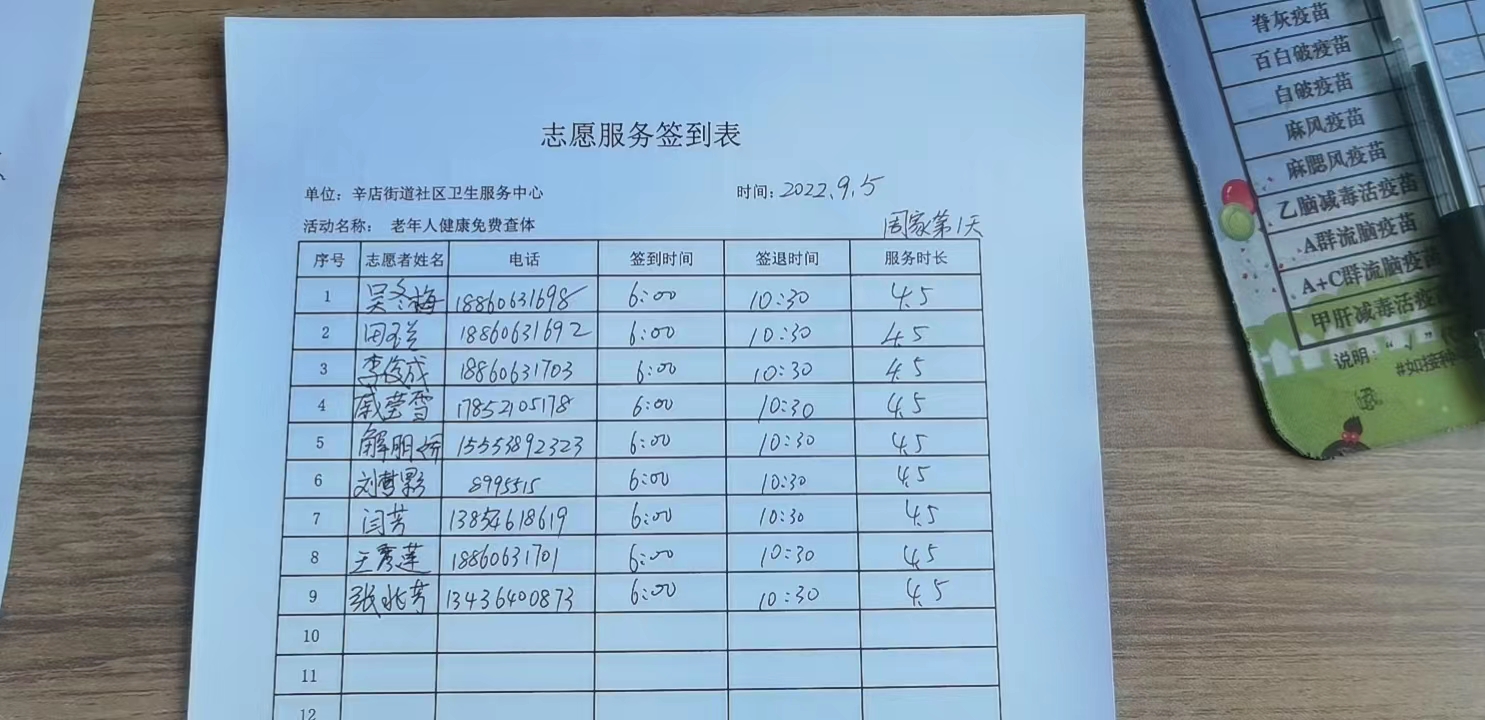 志愿服务签到表
单位：辛店街道社区卫生服务中心 时间：2022.9.5
活动名称： 老年人健康免费查体 周家第1天
序号 志愿者姓名 电话 签到时间 签退时间 服务时长
1 吴冬梅 18860631698 6:00 10:30 4.5
2 田玉兰 18860631692 6:00 10:30 4.5
3 李俊成 18860631703 6:00 10:30 4.5
4 戚莹雪 17852105178 6:00 10:30 4.5
5 解明娇 15553892323 6:00 10:30 4.5
6 刘梦影 8995515 6:00 10:30 4.5
7 闫芳 13854618619 6:00 10:30 4.5
8 王秀莲 18860631701 6:00 10:30 4.5
9 张兆芳 13436400873 6:00 10:30 4.5
10
11
12
脊灰疫苗
百白破疫苗
白破疫苗
麻风疫苗
麻腮风疫苗
乙脑减毒活疫苗
A群流脑疫苗
A+C群流脑疫苗
甲肝减毒活疫苗
说明：“√”
#如接种